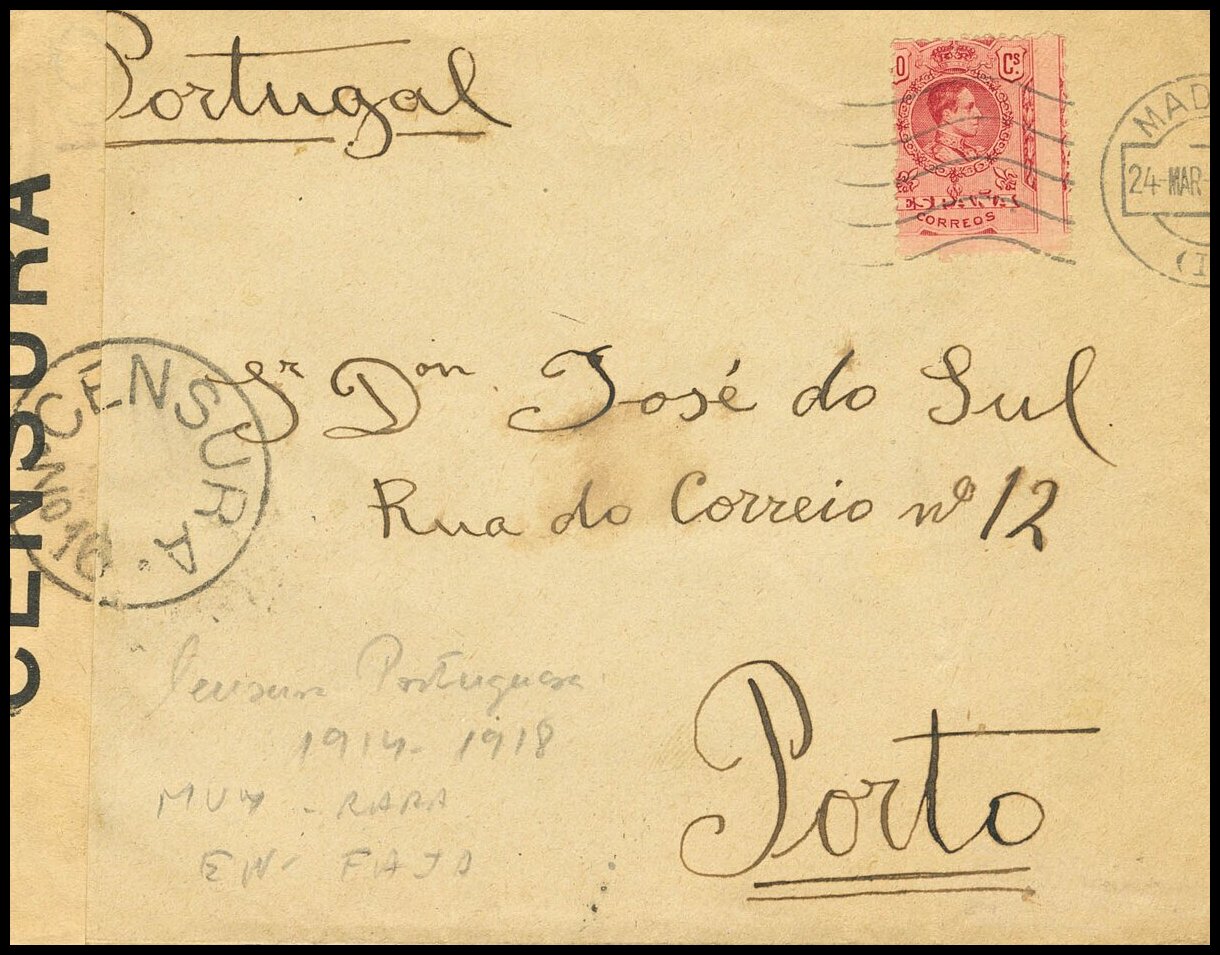 Portugal
0 Cs.
ESPAÑA
CORREOS
MAD
24-MAR-
(I
CENSURA
CENSURA
No 10
Sr Don José do Sul
Rua do Correio nº 12
Porto
Censura Portuguesa
1914-1918
MUY - RARA
EN FAJA